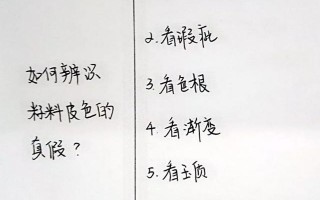 如何辨识
籽料皮色的
真假?
2.看瑕疵
3.看色根
4.看渐变
5.看玉质